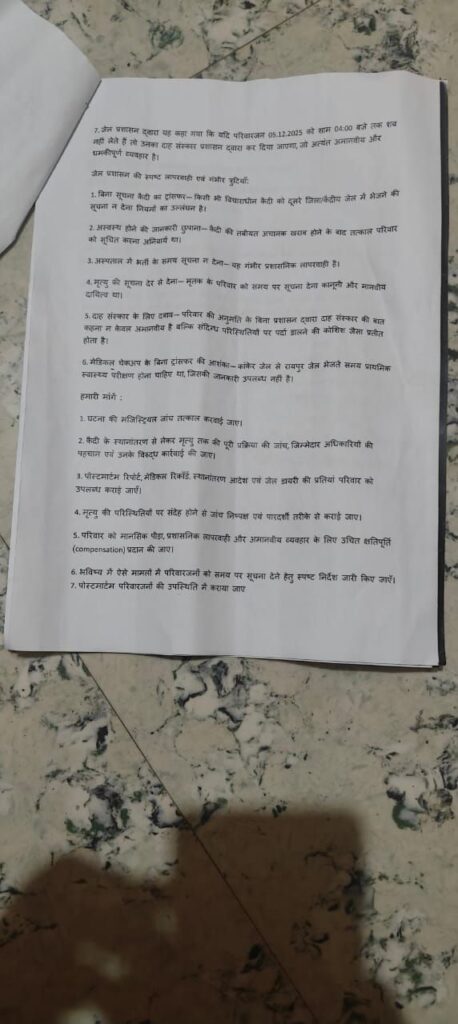 7. जेल प्रशासन द्वारा यह कहा गया कि यदि परिवारजन 05.12.2025 को शाम 04:00 बजे तक शव
नहीं लेते हैं तो उनका दाह संस्कार प्रशासन द्वारा कर दिया जाएगा, जो अत्यंत अमानवीय और
धमकीपूर्ण व्यवहार है।
जेल प्रशासन की स्पष्ट लापरवाही एवं गंभीर त्रुटियाँ:
1. बिना सूचना कैदी का ट्रांसफर— किसी भी विचाराधीन कैदी को दूसरे जिला/केंद्रीय जेल में भेजने की
सूचना न देना नियमों का उल्लंघन है।
2. अस्वस्थ होने की जानकारी छुपाना— कैदी की तबीयत अचानक खराब होने के बाद तत्काल परिवार
को सूचित करना अनिवार्य था।
3. अस्पताल में भर्ती के समय सूचना न देना— यह गंभीर प्रशासनिक लापरवाही है।
4. मृत्यु की सूचना देर से देना— मृतक के परिवार को समय पर सूचना देना कानूनी और मानवीय
दायित्व था।
5. दाह संस्कार के लिए दबाव— परिवार की अनुमति के बिना प्रशासन द्वारा दाह संस्कार की बात
कहना न केवल अमानवीय है बल्कि संदिग्ध परिस्थितियों पर पर्दा डालने की कोशिश जैसा प्रतीत
होता है।
6. मेडिकल चेकअप के बिना ट्रांसफर की आशंका— कांकेर जेल से रायपुर जेल भेजते समय प्राथमिक
स्वास्थ्य परीक्षण होना चाहिए था, जिसकी जानकारी उपलब्ध नहीं है।
हमारी मांगें :
1. घटना की मजिस्ट्रियल जांच तत्काल करवाई जाए।
2. कैदी के स्थानांतरण से लेकर मृत्यु तक की पूरी प्रक्रिया की जांच, जिम्मेदार अधिकारियों की
पहचान एवं उनके विरुद्ध कार्रवाई की जाए।
3. पोस्टमार्टम रिपोर्ट, मेडिकल रिकॉर्ड, स्थानांतरण आदेश एवं जेल डायरी की प्रतियां परिवार को
उपलब्ध कराई जाएँ।
4. मृत्यु की परिस्थितियों पर संदेह होने से जांच निष्पक्ष एवं पारदर्शी तरीके से कराई जाए।
5. परिवार को मानसिक पीड़ा, प्रशासनिक लापरवाही और अमानवीय व्यवहार के लिए उचित क्षतिपूर्ति
(compensation) प्रदान की जाए।
6. भविष्य में ऐसे मामलों में परिवारजनों को समय पर सूचना देने हेतु स्पष्ट निर्देश जारी किए जाएँ।
7. पोस्टमार्टम परिवारजनों की उपस्थिति में कराया जाए